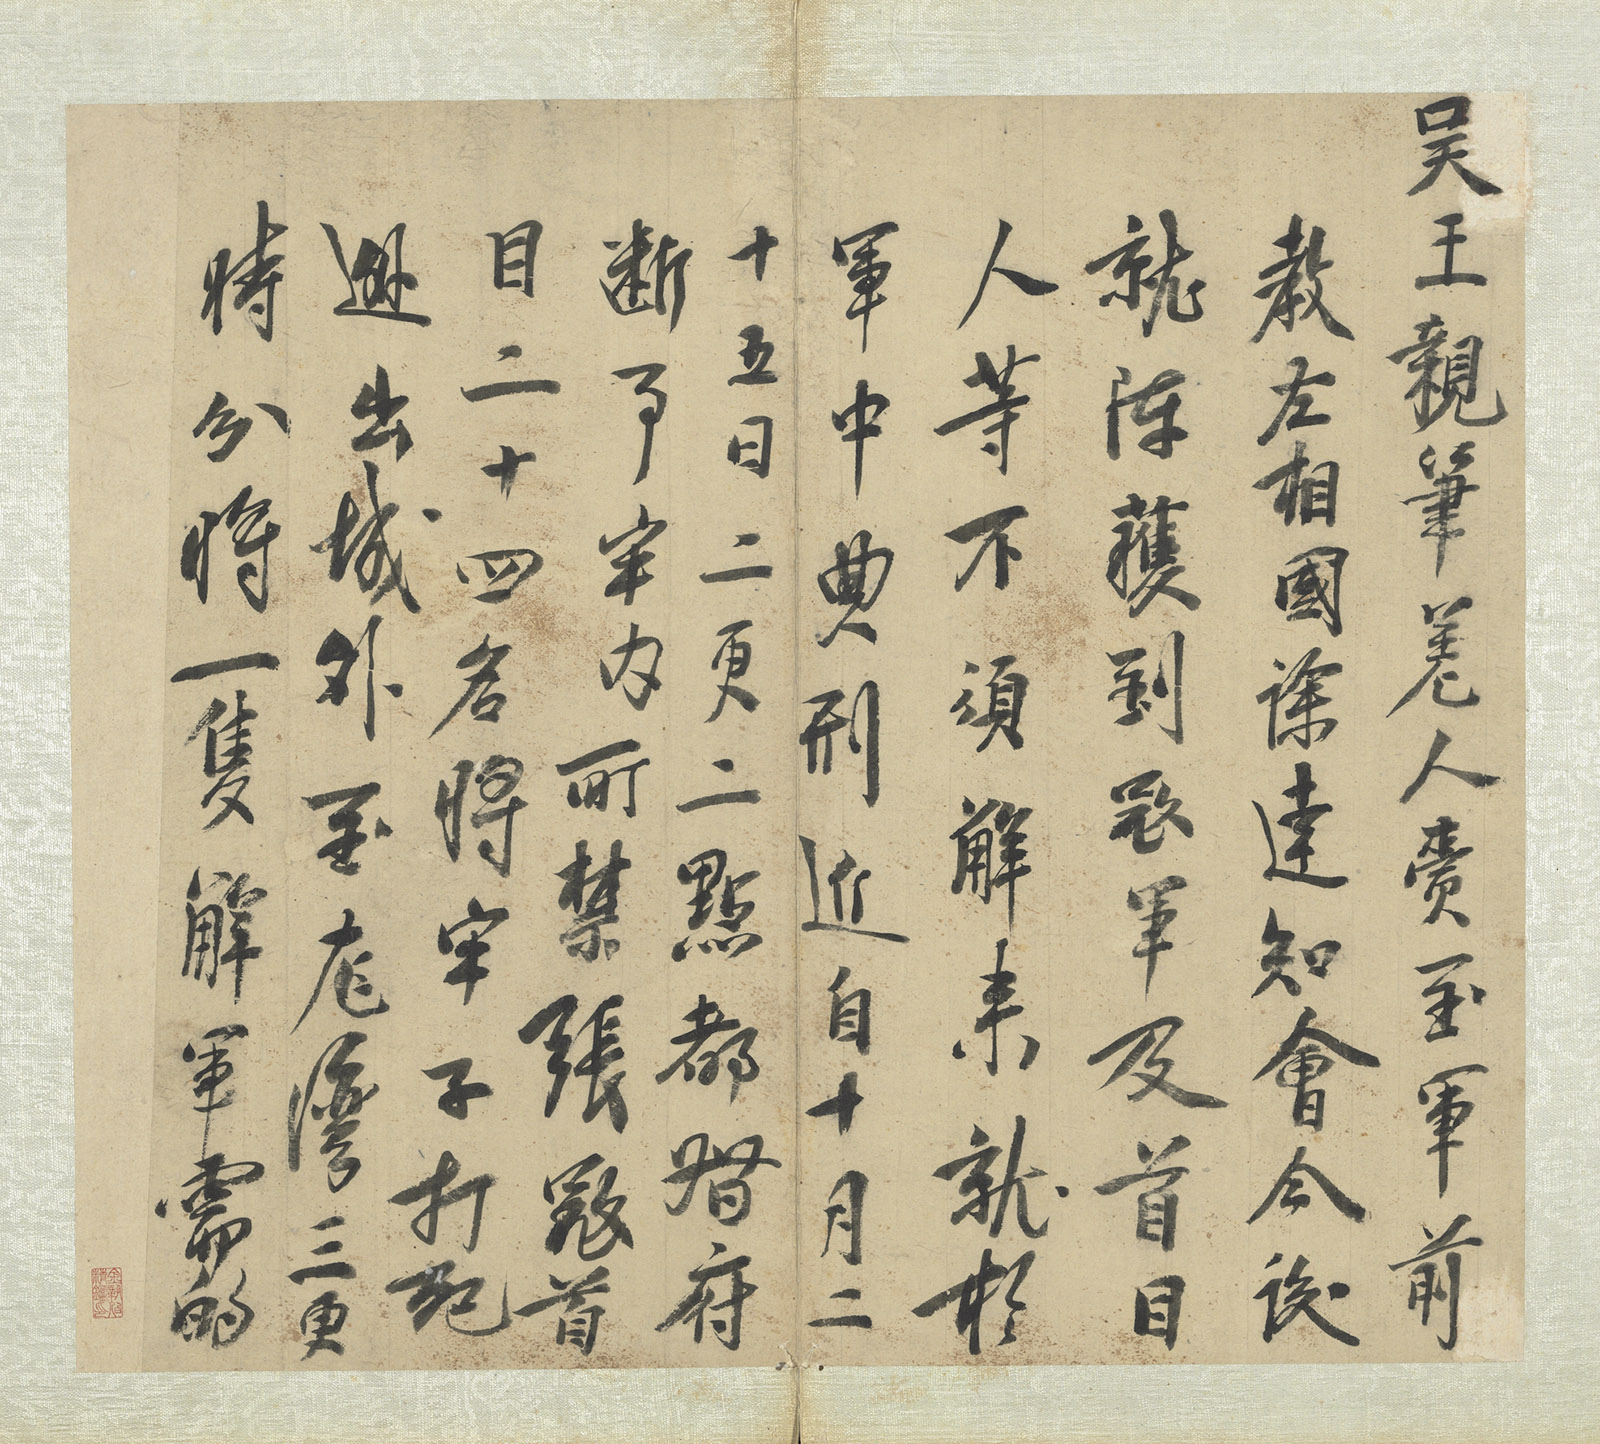 吳王親筆差人賫至軍前
教左相國徐達知會今後
就陣獲到寇軍及首目
人等不須解來就於
軍中典刑近自十月二
十五日二更二點都督府
斷事牢內所禁張寇首
目二十四名將牢子打死
越出城外至龙灣三更
時分將一隻解軍需的